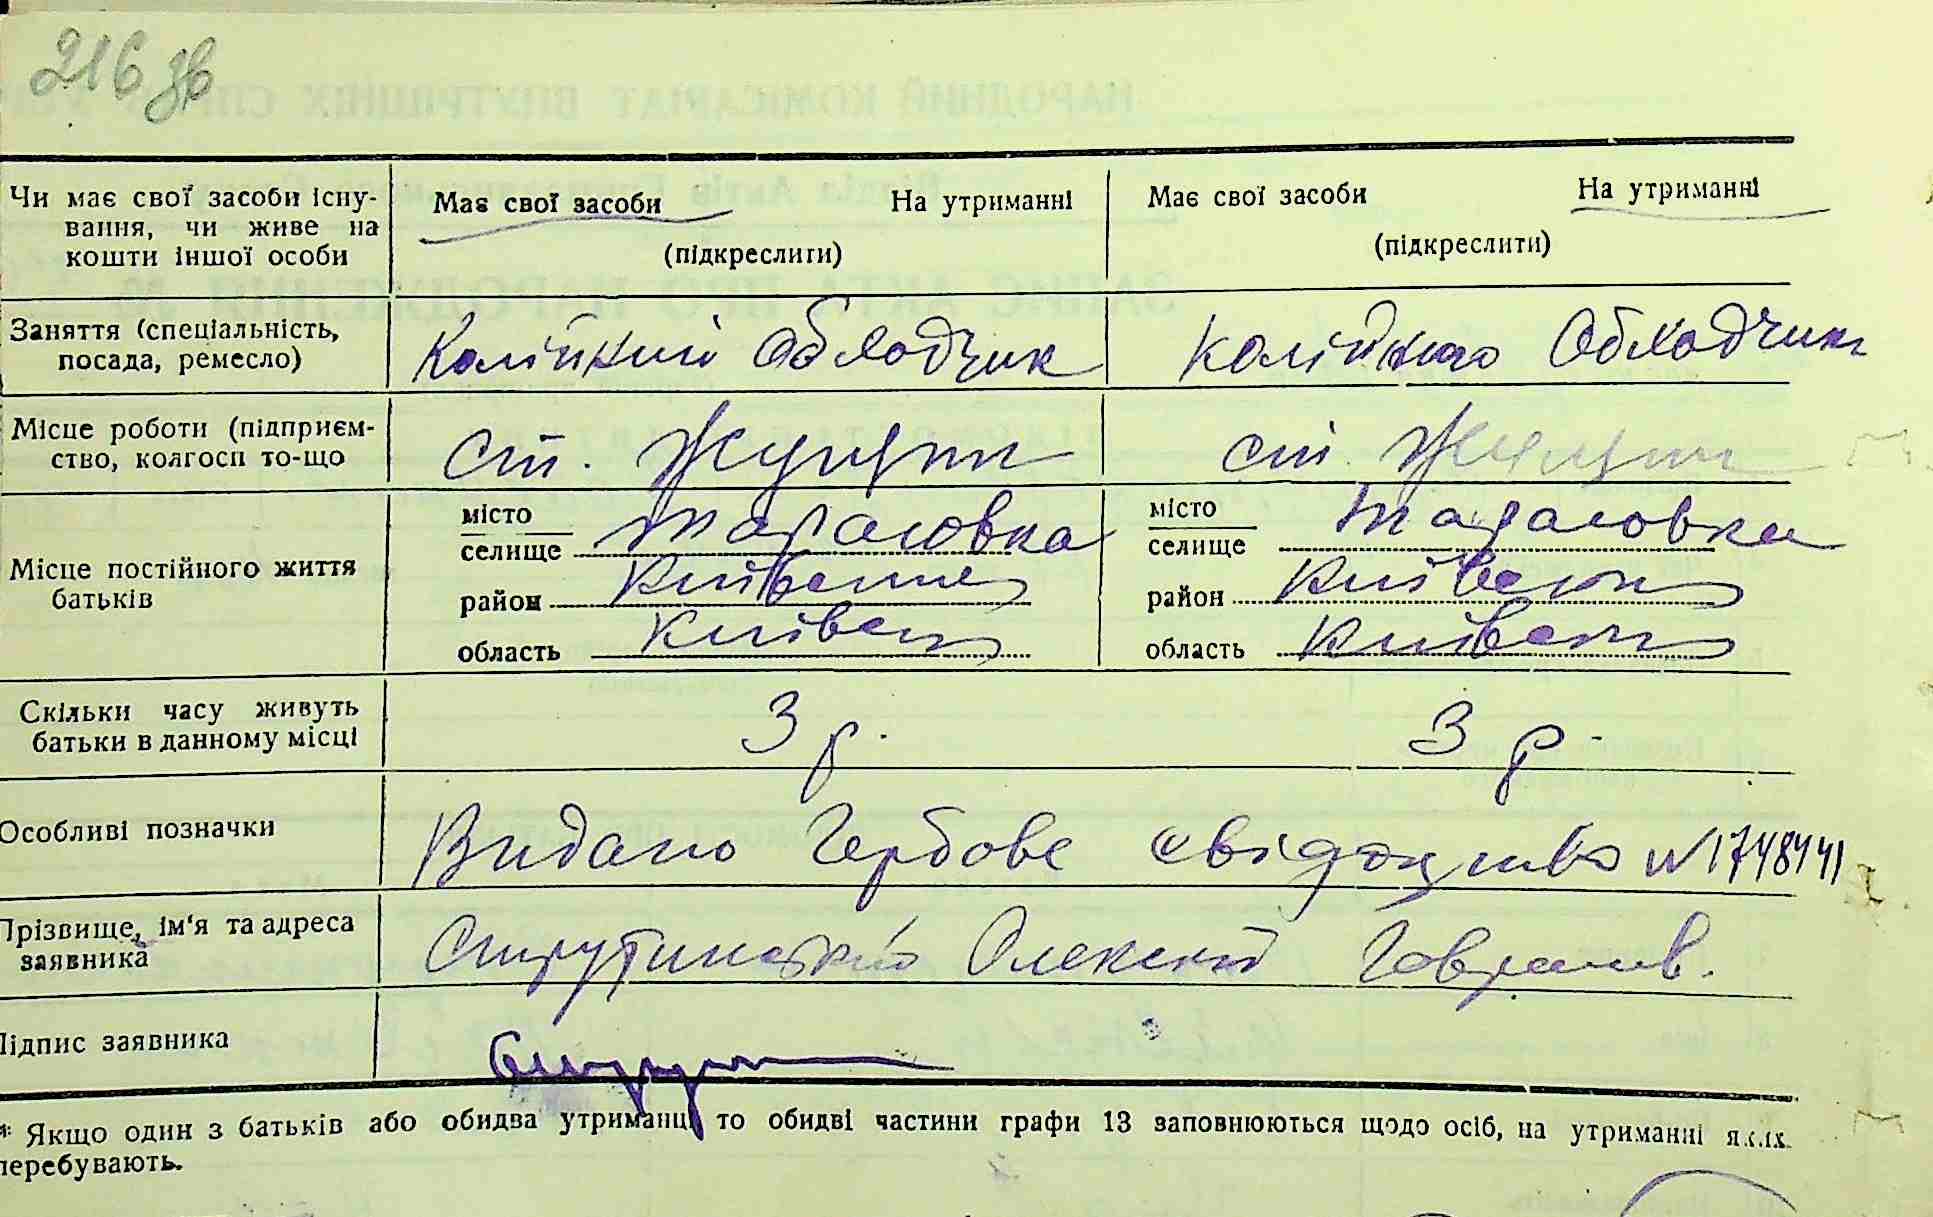 216 зв
Чи має свої засоби існу-
вання, чи живе на
кошти іншої особи
Має свої засоби На утриманні
(підкреслити)
Має свої засоби На утриманні
(підкреслити)
Заняття (спеціальність,
посада, ремесло)
Колійний Обходчик
Колійного Обходчик
Місце роботи (підприєм-
ство, колгосп то-що
ст. Жуляни
ст. Жуляни
Місце постійного життя
батьків
місто
селище Тарасовка
район Київський
область Київськ
місто
селище Тарасовка
район Київськ
область Київськ
Скільки часу живуть
батьки в данному місці
3 р.
3 р.
Особливі позначки
Видано Гербове свідоцтво №1748441
Прізвище, ім'я та адреса
заявника
Струтинський Олексій Гаврилов.
Підпис заявника
* Якщо один з батьків або обидва утриманці то обидві частини графи 13 заповнюються щодо осіб, на утриманні яких
перебувають.